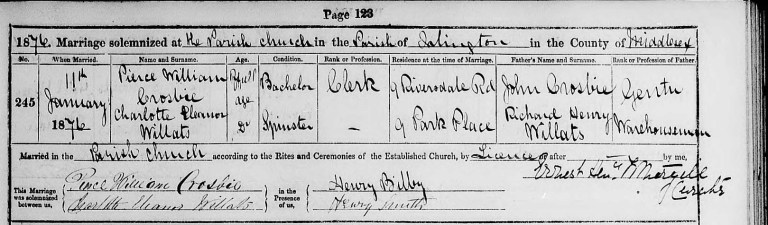 Page 123
1876. Marriage solemnized at the Parish Church in the Parish of Islington in the County of Middlesex
No. When Married. Name and Surname. Age. Condition. Rank or Profession. Residence at the time of Marriage. Father's Name and Surname. Rank or Profession of Father.
245 11th January 1876 Pierce William Crosbie of full age Bachelor Clerk 9 Riversdale Rd John Crosbie Gentn
Charlotte Eleanor Willats Do Spinster – 9 Park Place Richard Henry Willats Warehouseman
Married in the Parish Church according to the Rites and Ceremonies of the Established Church, by Licence or after by me,
Ernest Curate
This Marriage was solemnized between us, Pierce William Crosbie in the Presence of us, Henry Bilby
Charlotte Eleanor Willats Henry Smith